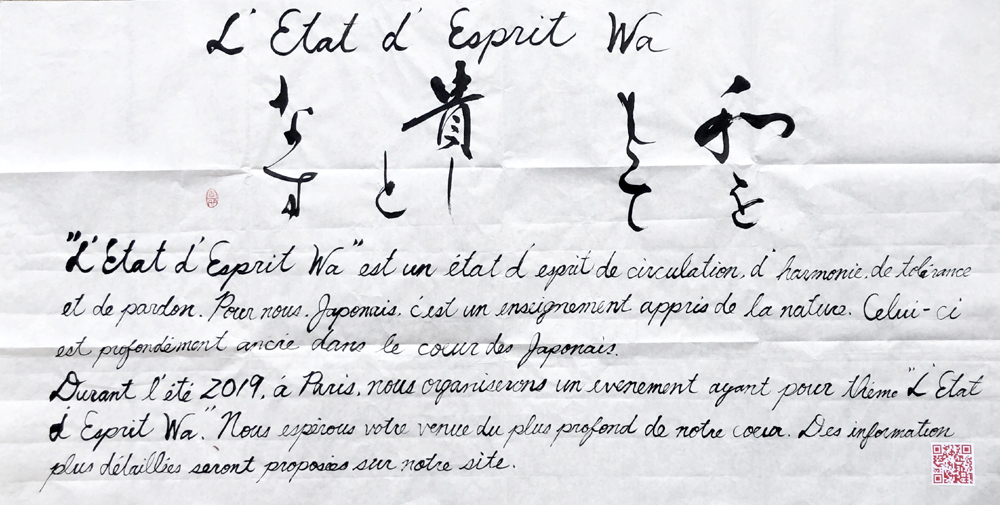 L'Etat d'Esprit Wa
和を
もって
貴し
と
なす
"L'Etat d'Esprit Wa" est un état d'esprit de circulation, d'harmonie, de tolérance
et de pardon. Pour nous, Japonais, c'est un enseignement appris de la nature. Celui-ci
est profondément ancré dans le coeur des Japonais.
Durant l'été 2019, à Paris, nous organiserons un evenement ayant pour thème "L'Etat
d'Esprit Wa". Nous espérons votre venue du plus profond de notre coeur. Des information
plus détaillées seront proposées sur notre site.